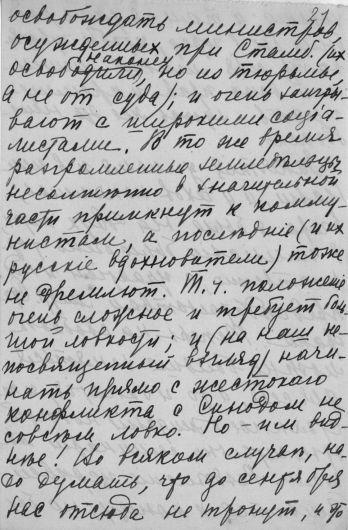 21
освобождать министров,
осужденных при Стамб. (их
наконец
освободили, но из тюрьмы,
а не от суда); и очень заигры-
вают с широкими соціа-
листами. В то же время
разгромленные земледѣльцы
несомнѣнно в значительной
части примкнут к комму-
нистам, а последніе (и их
русскіе вдохновители) тоже
не дремлют. Т. ч. положеніе
очень сложное и требует боль-
шой ловкости; и (на наш не-
посвященный взгляд) начи-
нать прямо с жестокаго
конфликта с Синодом не
совсем ловко. Но – им вид-
нѣе! Во всяком случаѣ, на-
до думать, что до сентября
нас отсюда не тронут, и это